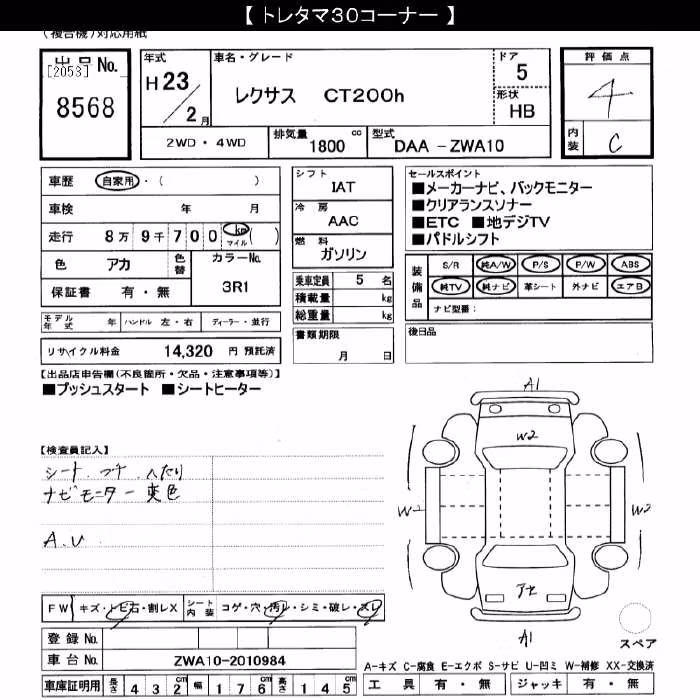 【 トレタマ30コーナー 】
(複合機)対応用紙
出品No.
[2053]
8568
年式
H23/2月
車名・グレード
レクサス CT200h
ドア
5
形状
HB
評価点
4
内装
C
2WD・4WD
排気量 1800 cc
型式 DAA-ZWA10
車歴 自家用・( )
車検 年 月
走行 8万9千700 km マイル ( )
色 アカ
色替
カラーNo.
3R1
保証書 有・無
モデル年式 年 ハンドル 左・右 ディーラー・並行
リサイクル料金 14,320 円 預託済
シフト
IAT
冷房
AAC
燃料
ガソリン
乗車定員 5 名
積載量 kg
総重量 kg
書類期限
月 日
セールスポイント
■メーカーナビ、バックモニター
■クリアランスソナー
■ETC ■地デジTV
■パドルシフト
装備品
S/R 純A/W P/S P/W ABS
純TV 純ナビ 革シート 外ナビ エアB
ナビ型番:
後日品
【出品店申告欄(不良箇所・欠品・注意事項等)】
■プッシュスタート ■シートヒーター
【検査員記入】
ナビモニター 変色
A.U
A1
W2
W2
W2
A1
FW キズ・トビ石・割レX
シート内装 コゲ・穴・汚レ・シミ・破レ・スレ
登録No.
車台No. ZWA10-2010984
車庫証明用 長さ 432cm 幅 176cm 高さ 145cm
スペア
A-キズ C-腐食 E-エクボ S-サビ U-凹ミ W-補修 XX-交換済
工具 有・無 ジャッキ 有・無